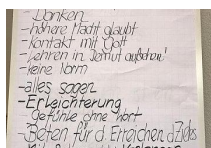 - Danken
- höhere Macht glaubt
- Kontakt mit Gott
- Lehren in Demut
- keine Norm
- alles sagen
- Erleichterung
Gefühle ohne Wort
- Beten für d. Erreichen d Ziels